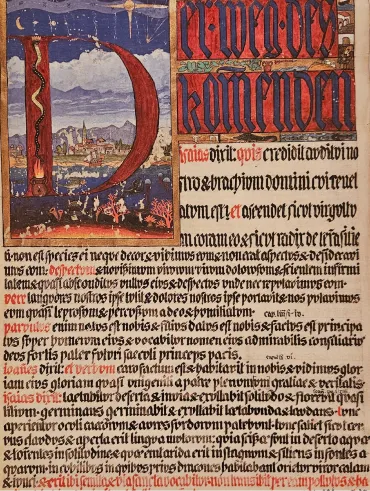 D
er·weg·des
kom̄enden
Isaias dixit: quis credidit auditui no
stro & brachium domini cui revel
atum est? et ascendet sicut virgultu
m coram eo & sicut radix de terra sitie
ti· non est species ei neque decor & vidimus eum & non erat aspectus & desideravi
mus eum: despectum & novissimum virorum virum dolorosum & scientem infirmi
tatem & quasi absconditus vultus eius & despectus unde nec reputavimus eum·
vere languores nostros ipse tulit & dolores nostros ipse portavit & nos putavimus
eum quasi leprosum & percussum a deo & humiliatum·
parvulus enim natus est nobis & filius datus est nobis & factus est principa
tus super humerum eius & vocabitur nomen eius admirabilis consiliarius
deus fortis pater futuri saeculi princeps pacis.
ioannes dixit: et verbum caro factum est & habitavit in nobis & vidimus glor
iam eius gloriam quasi unigeniti a patre plenum gratiae & veritatis.
Isaias dixit: laetabitur deserta & invia & exultabit solitudo & florebit quasi
lilium· germinans germinabit & exultabit laetabunda & laudans· tunc
aperientur oculi caecorum & aures sordorum patebunt· tunc saliet sicut cer
vus claudus & aperta erit lingua mutorum: quia scissae sunt in deserto aquae
& torrentes in solitudine & quae erat arida in stagnum & sitiens in fontes a
quarum· in cubilibus in quibus prius dracones habitabant orietur viror calami
& iunci· & erit ibi semita & via sancta vocabitur· non transibit per eam pollutus & ha